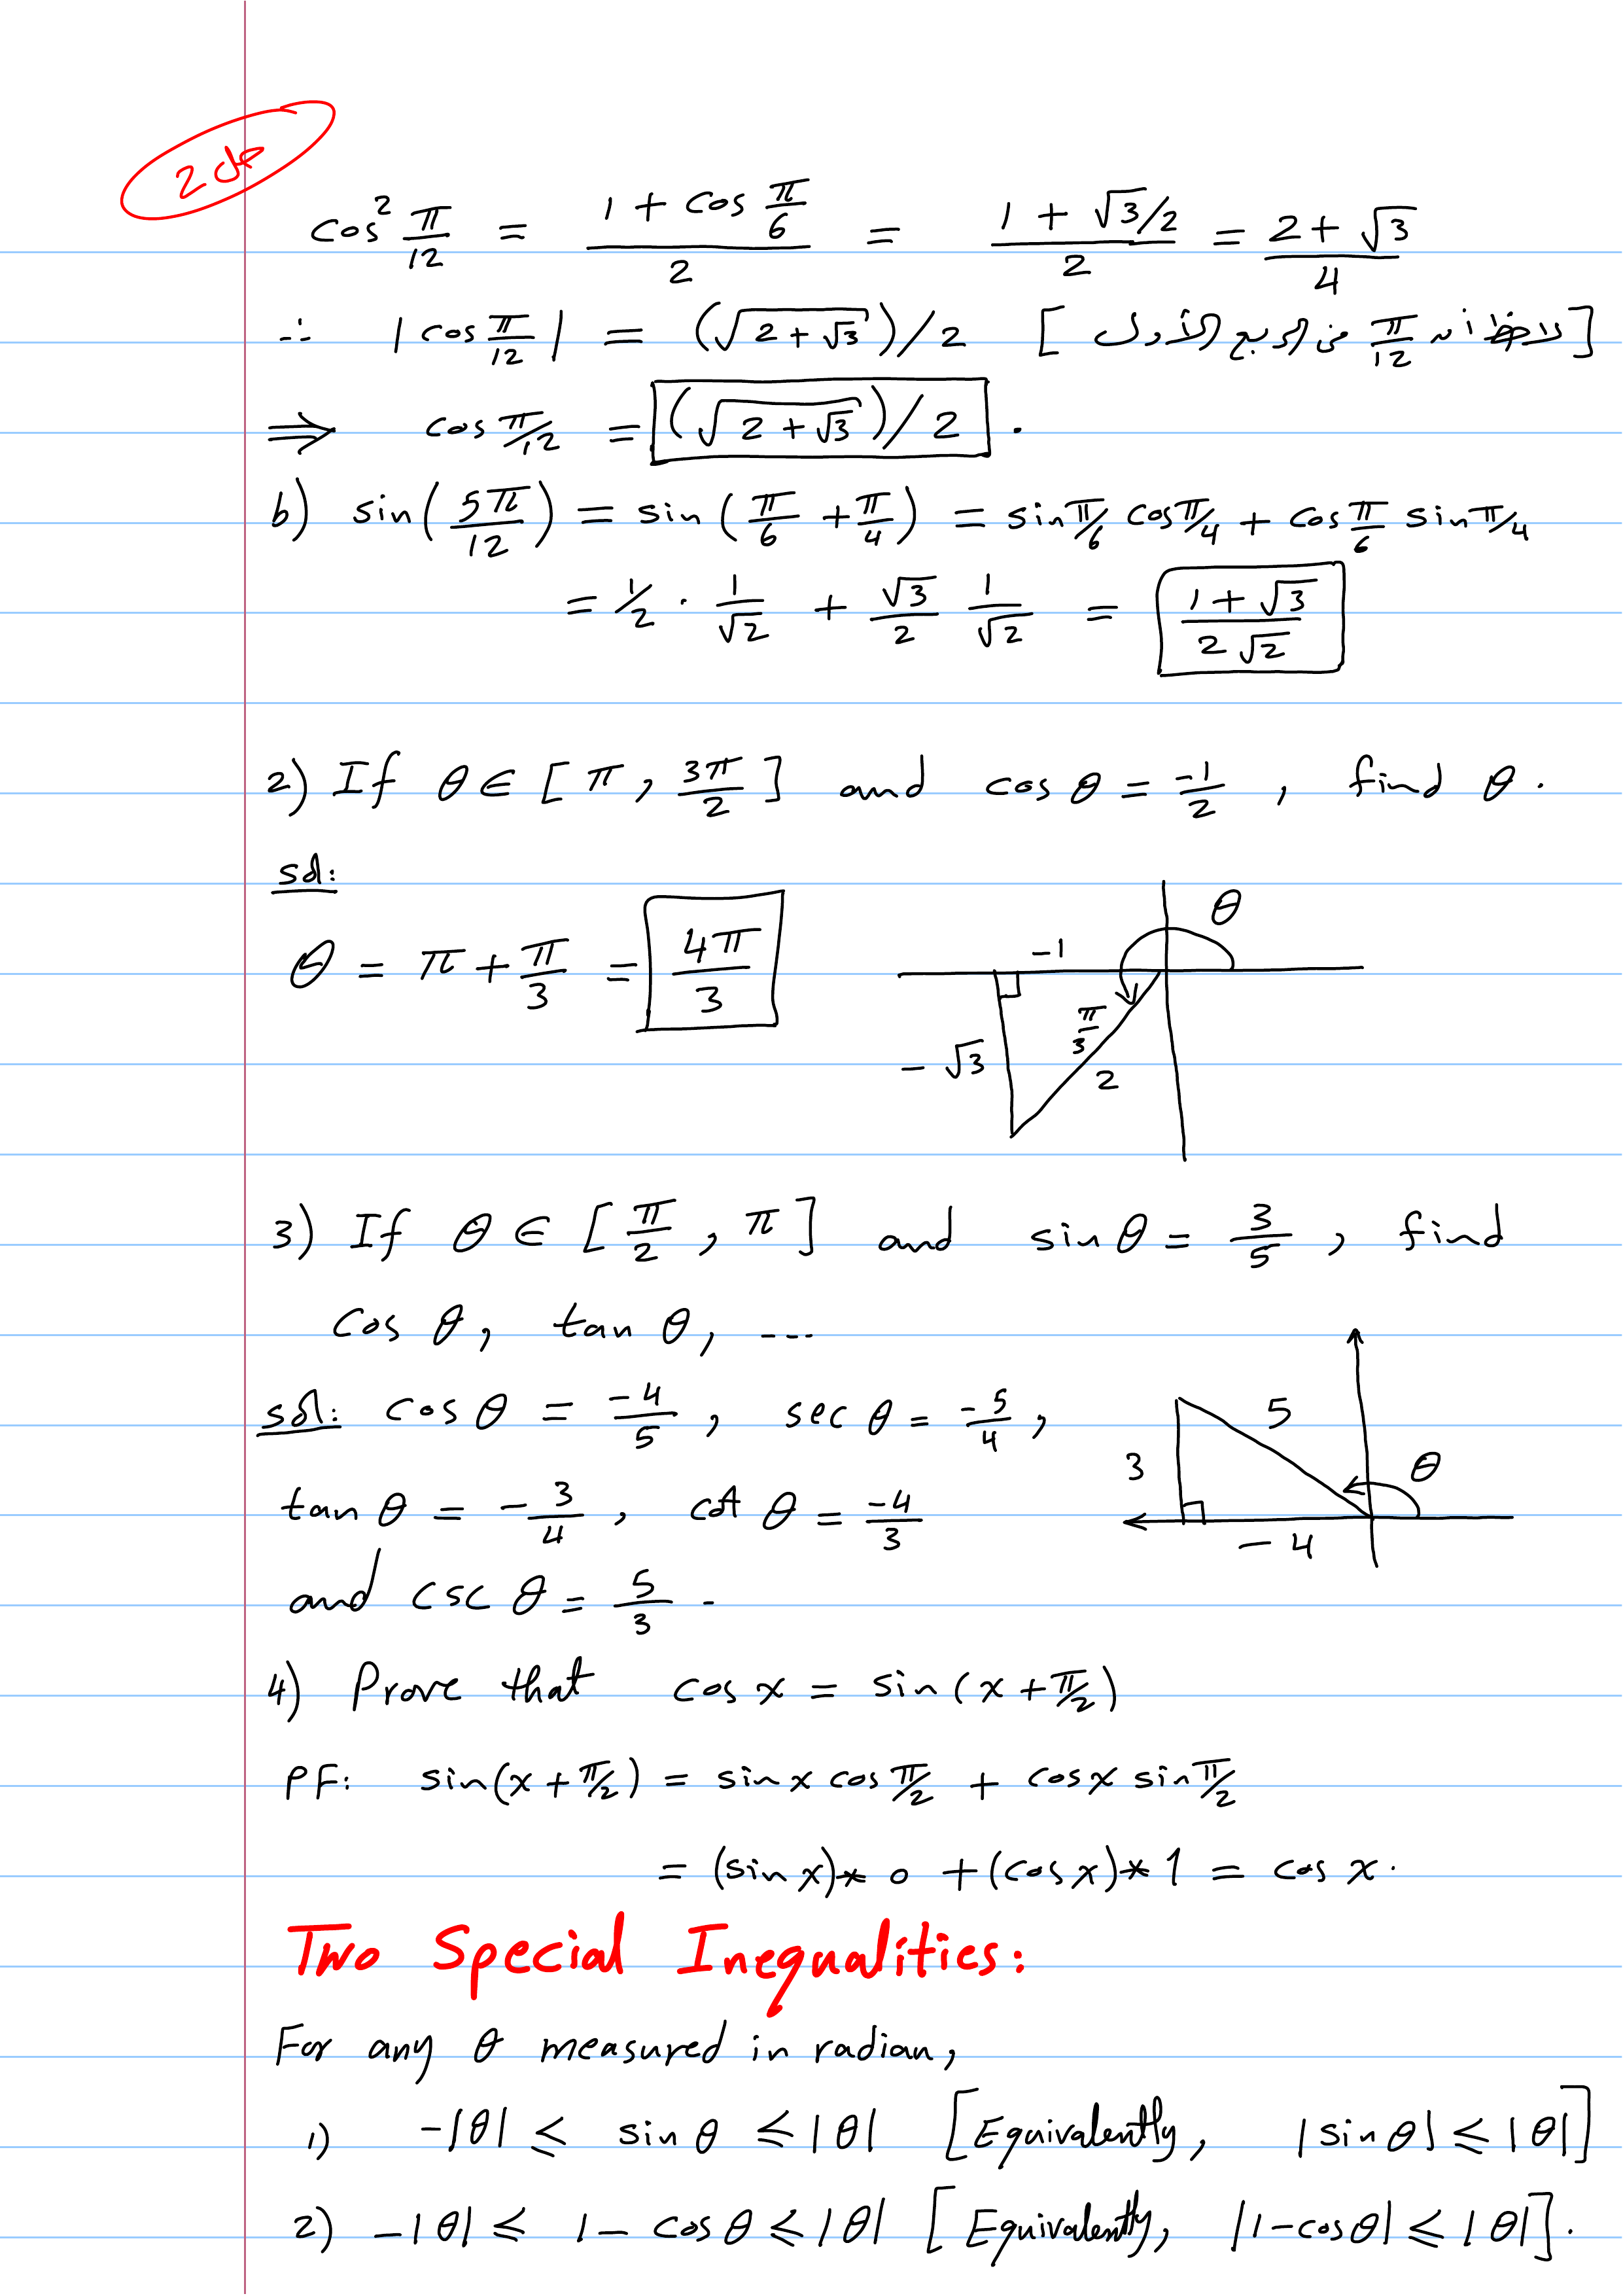 cos² π/12 = (1 + cos π/6)/2 = (1 + √3/2)/2 = (2 + √3)/4
∴ |cos π/12| = (√(2 + √3))/2 [لاحظ أن π/12 في الربع الأول]
⇒ cos π/12 = (√(2 + √3))/2 .
b) sin(5π/12) = sin(π/6 + π/4) = sin π/6 cos π/4 + cos π/6 sin π/4
= 1/2 · 1/√2 + √3/2 1/√2 = (1 + √3)/(2√2)
2) If θ ∈ [π, 3π/2] and cos θ = -1/2, find θ.
sol:
θ = π + π/3 = 4π/3
θ
-1
π/3
-√3
2
3) If θ ∈ [π/2, π] and sin θ = 3/5, find
cos θ, tan θ, ----
sol: cos θ = -4/5, sec θ = -5/4,
tan θ = -3/4, cot θ = -4/3
and csc θ = 5/3 -
5
3
θ
-4
4) Prove that cos x = sin(x + π/2)
PF: sin(x + π/2) = sin x cos π/2 + cos x sin π/2
= (sin x)* 0 + (cos x)* 1 = cos x.
Two Special Inequalities:
For any θ measured in radian,
1) -|θ| ≤ sin θ ≤ |θ| [Equivalently, |sin θ| ≤ |θ|]
2) -|θ| ≤ 1 - cos θ ≤ |θ| [Equivalently, |1 - cos θ| ≤ |θ|].